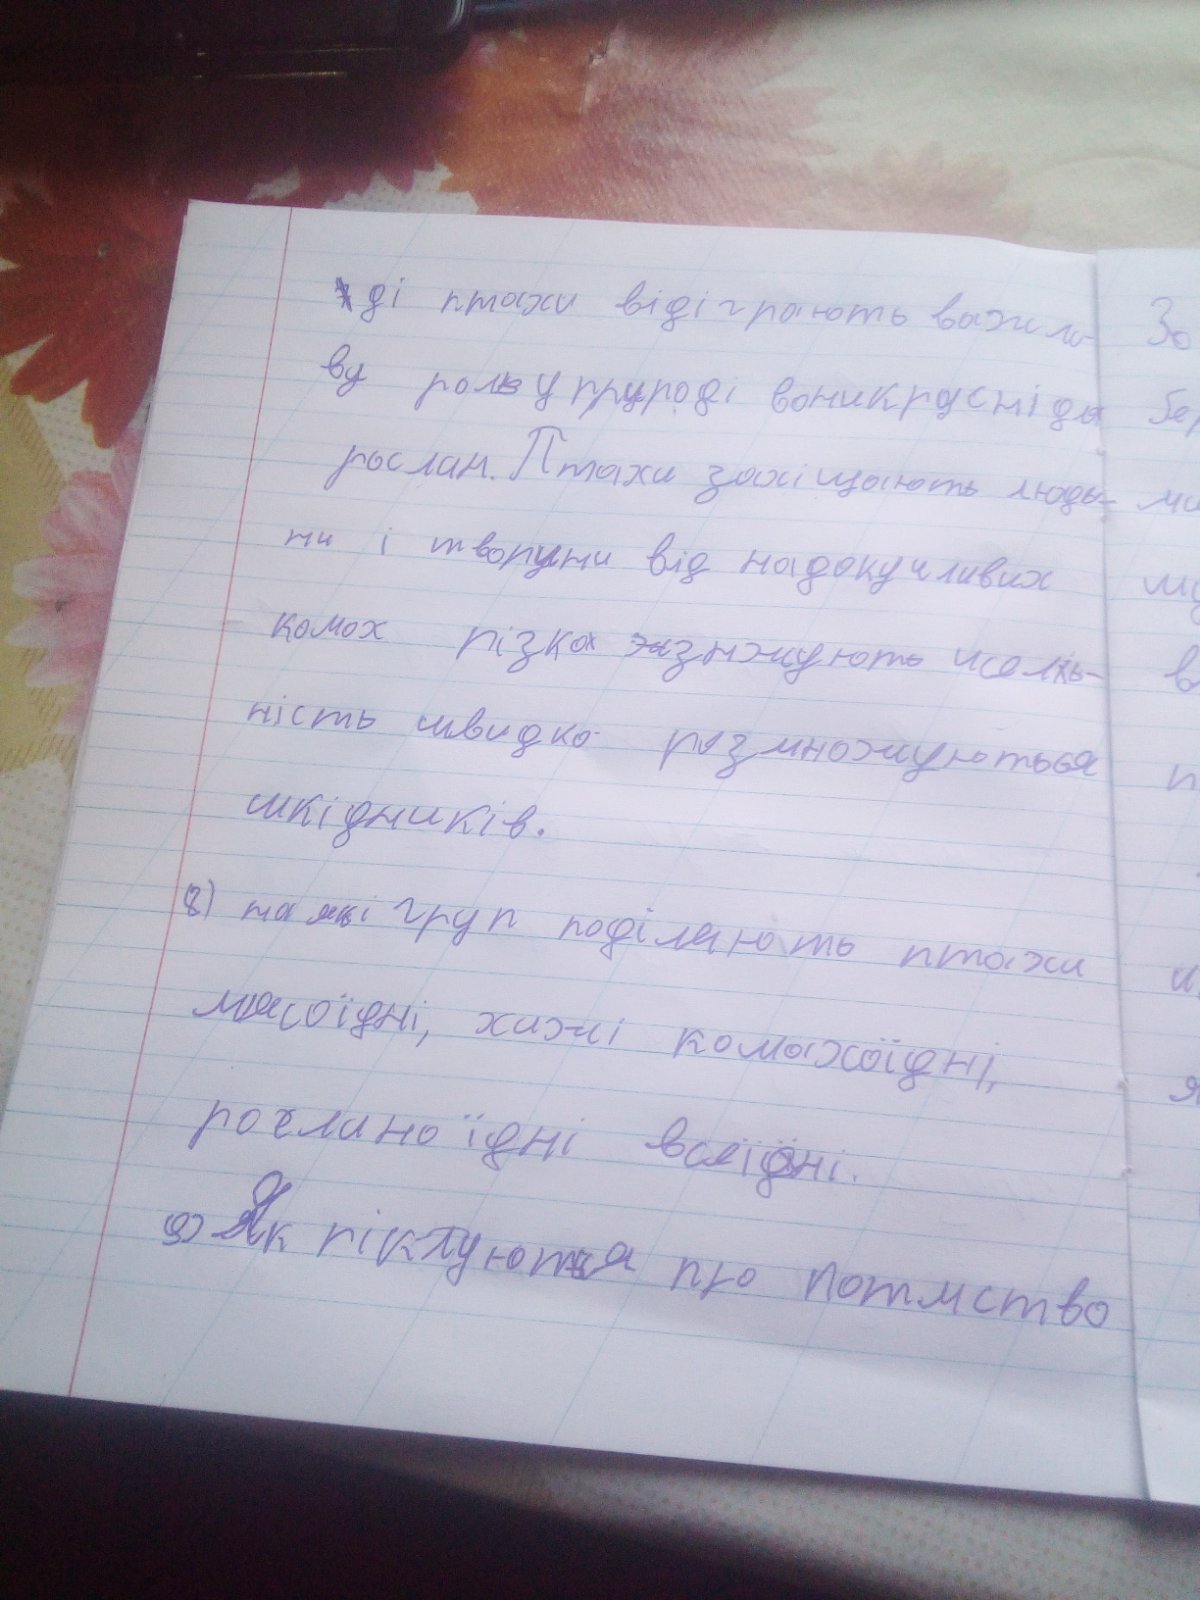 ді птахи відіграють важли-
ву роль у природі вони красні для
рослин. Птахи захіщають люди-
ни і творини від надокучливих
комах різка знжують чселнь-
ність швидко розмножуються
шкідників.
8) на які груп поділяють птахи
мясоїдні, хижі комахоїдні,
рослиноїдні всеїдні.
9) Як піклуються про потмство
Зо
бер
ми
му
в
п
я